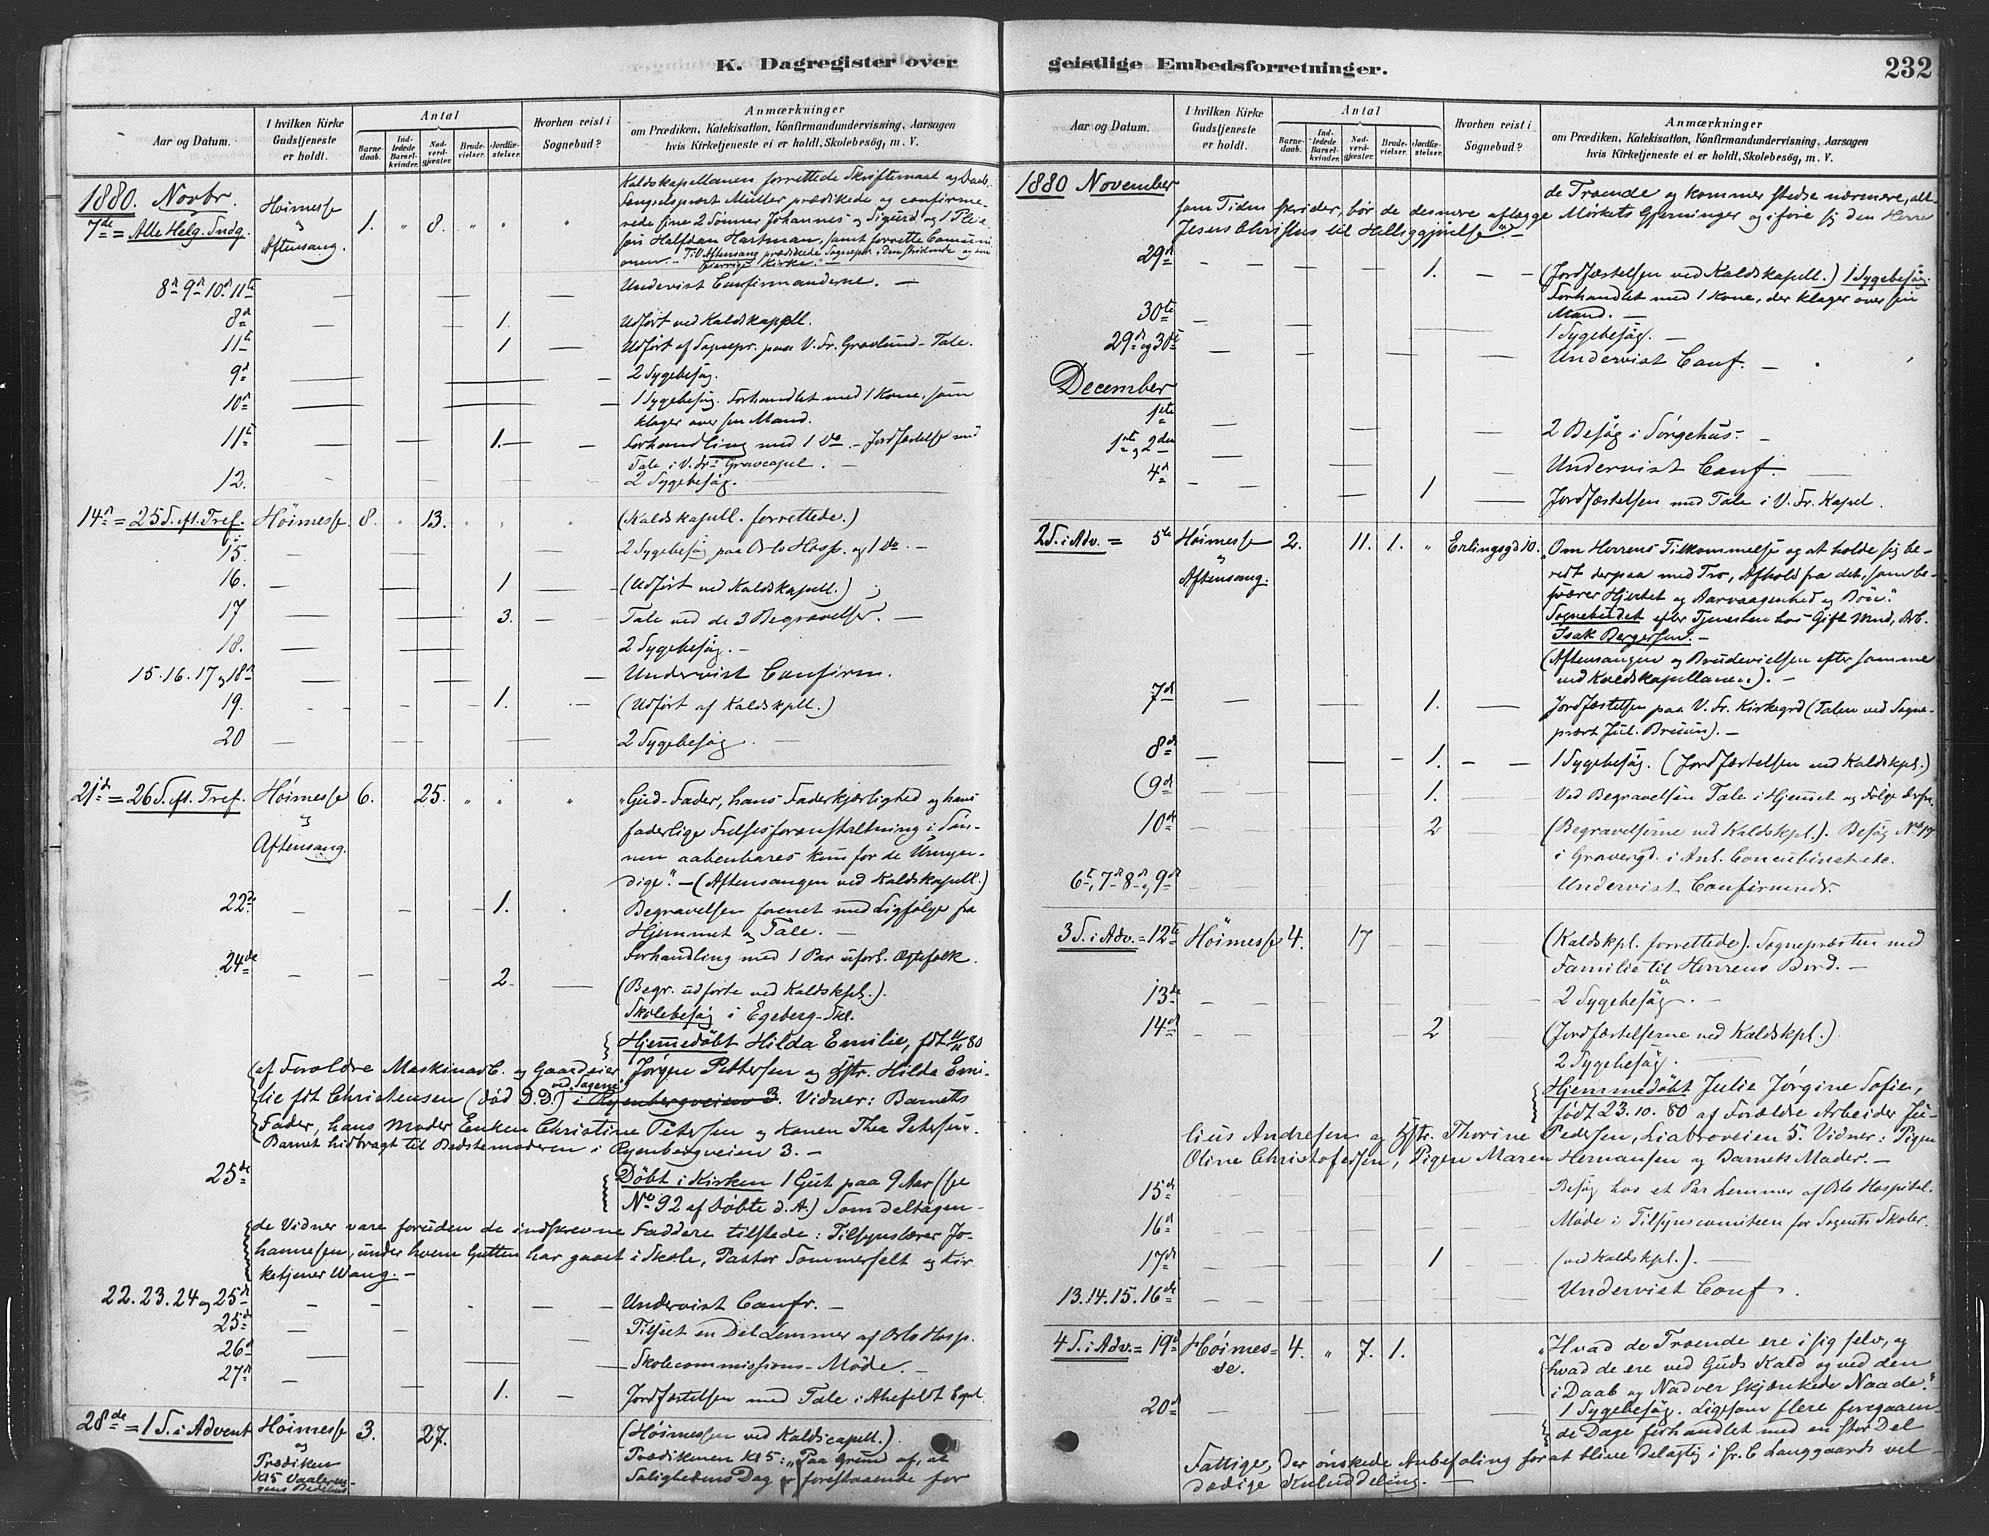 K. Dagregister over
Aar og Datum.
I hvilken Kirke Gudstjeneste er holdt.
Antal
Barnedaab.
Indledede Barselkvinder.
Nadverdgjester.
Brudevielser.
Jordfæstelser.
Hvorhen reist i Sognebud?
Anmærkninger
om Prædiken, Katekisation, Konfirmandundervisning, Aarsagen
hvis Kirketjeneste ei er holdt, Skolebesøg, m. V.
1880. Novbr.
7de = Alle Helg. Sndg. Høimesse og Aftensang. 1. " 8. " " "
Kaldskapellanen forrettede Skriftemaal og Daab.
Fængselspræst Müller prædikede og confirme-
rede sine 2 Sønner Johannes og Sigurd, og 1 Pleie-
søn Halfdan Hartman, samt forrette Communi-
onen. - Til Aftensang prædikede Sognepr.
8n 9n 10n 11te — — — Undervist Confirmanderne. —
8d — — 1. Udført ved Kaldskappll.
11te — — 1 — Udført af Sognepr. paa V. Fr. Gravlund - Tale.
9d — — 2 Sygebesøg.
10n — — 1 Sygebesøg. Forhandlet med 1 Kone, som
klager over sin Mand.
11te — — 1. — Forhandling med 1 Do. - Jordfæstelse med
Tale i V. Frs Gravcapel. —
12. — — 2 Sygebesøg.
14n = 25 S. eft. Tref. Høimesse 8. " 13. " " " (Kaldskapell. forrettede.)
15. — — — 2 Sygebesøg paa Oslo Hosp. og 1 Do. —
16. — — 1 — (Udført ved Kaldskapell.)
17 — — 3. — Tale ved de 3 Begravelser. —
18. — — 2 Sygebesøg. —
15. 16. 17 og 18n — — — Undervist Confirm.
19. — — 1. — (Udført af Kaldskpll.)
20 — — — 2 Sygebesøg. —
21de = 26 S. eft. Tref. Høimesse og Aftensang. 6. 25. " " " "Gud-Fader, hans Faderkjærlighed og hans
faderlige Frelsesforanstaltning i Søn-
nen aabenbares kun for de Umyn-
dige". — (Aftensangen ved Kaldskapell.)
22de — — — 1. Begravelsen forenet med Ligfølge fra
Hjemmet og Tale. —
24de Forhandling med 1 Par uforl. Ægtefolk.
— — — 2. — (Begr. udførte ved Kaldskpl.).
Skolebesøg i Egeberg-Skl.
Hjemmedøbt Hilda Emilie, født 11/11 80
(af Forældre Maskinarb. og Gaardeier Jørgen Pettersen og Hstr. Hilda Emi-
lie født Christensen (død D.D.) ved Sagene i Ryenbergveien 3. Vidner: Barnets
Fader, hans Moder Enken Christine Petersen og Konen Thea Petersen.
Barnet hidbragt til Bedstemoderen i Ryenbergveien 3. —
25de Døbt i Kirken 1 Gut paa 9 Aar (se
No 92 af Døbte d. A.) Som deltagen-
de Vidner vare foruden de indskrevne Faddere tilstede: Tilsynslærer Jo-
hannesen, under hvem Gutten har gaaet i Skole, Pastor Sommerfelt og Kir-
ketjener Wang. —
22. 23. 24 og 25de — — — Undervist Confr. —
25de — — — Tilseet en Del Lemmer af Oslo Hosp.
26d — — — Skolecommissions-Møde. —
27n — — 1. — Jordfæstelsen med Tale i Ahlefeldt Cpel.
28de = 1 S. i Advent Høimesse og Prædiken 3. 27. (Høimessen ved Kaldscapell.).
Kl 5 Prædikenen Kl 5: "Paa Grund af, at
Salighedens Dag er forestaaende for
geistlige Embedsforretninger.
232
Aar og Datum.
I hvilken Kirke Gudstjeneste er holdt.
Antal
Barnedaab.
Indledede Barselkvinder.
Nadverdgjester.
Brudevielser.
Jordfæstelser.
Hvorhen reist i Sognebud?
Anmærkninger
om Prædiken, Katekisation, Konfirmandundervisning, Aarsagen
hvis Kirketjeneste ei er holdt, Skolebesøg, m. V.
1880 November
de Troende og kommer stedse nærmere, alt-
som Tiden skrider, bør de desmere aflægge Mørkets Gjerninger og iføre sig den Herre
Jesus Christus til Helliggjørelse". —
29n — — — 1. — (Jordfæstelsen ved Kaldskapell.) 1 Sygebesøg.
Forhandlet med 1 Kone, der klager over sin
Mand. —
30te — — — 1 Sygebesøg. —
29n og 30te — — — Undervist Conf. —
December
1ste — — — 2 Besøg i Sørgehus. —
1ste og 2den — — — Undervist Conf. —
4d — — 1 — Jordfæstelsen med Tale i V. Fr. Kapel.
2 S. i Adv. = 5te Høimesse og Aftensang. 2. 11. 1. " Erlingsgd 10. "Om Herrens Tilkommelse og at holde sig be-
redt derpaa med Tro, Afhold fra det, som be-
sværer Hjertet og Aarvaagenhed og Bøn."
Sognebudet efter Tjenesten hos Gift Mnd, Arb.
Isak Bergersen. —
(Aftensangen og Brudevielsen efter samme
ved Kaldskapellanen). —
7d — — 1. — Jordfæstelsen paa V. Fr. Kirkegrd (Talen ved Sogne-
præst Jul. Bruun). —
8de — — 1. — 1 Sygebesøg. (Jordfæstelsen ved Kaldskpl.)
(9d — — 1. — Ved Begravelsen Tale i Hjemmet og Følge derfra.
10de — — 2 — (Begravelserne ved Kaldskpl.). Besøg No 17
i Gravergd. i Anl. Concubinat etc.
6te, 7d 8n og 9de — — — Undervist Confirmndr.
3 S. i Adv. = 12te Høimesse 4. 17 — — (Kaldskpl. forrettede). Sognepræsten med
Familie til Herrens Bord. —
13de — — — 2 Sygebesøg. —
14d — — 2 — (Jordfæstelserne ved Kaldskpl.)
2 Sygebesøg. —
Hjemmedøbt Julie Jørgine Sofie,
født 23. 10. 80 af Forældre Arbeider Ju-
lius Andresen og Hstr. Thorine Pedersen, Liabroveien 5. Vidner: Pigen
Oline Christofersen, Pigen Maren Hermansen og Barnets Moder. —
15de — — — Besøg hos et Par Lemmer af Oslo Hospital.
16d — — — Møde i Tilsynscomiteen for Sognets Skoler.
17de — — 1 — (ved Kaldskpl.). —
13. 14. 15. 16de — — — Undervist Conf.
4 S. i Adv. = 19d Høimes-
se. 4. " 7. 1. "Hvad de Troende ere i sig selv, og
hvad de ere ved Guds Kald og ved den
i Daab og Nadver skjænkede Naade."
20d 1 Sygebesøg. Ligesom flere foregaaen-
de Dage forhandlet med en stor Del
Fattige, der ønskede Anbefaling for at blive delagtig i Fr. C. Langgaards vel-
dædige Kuluddeling. —